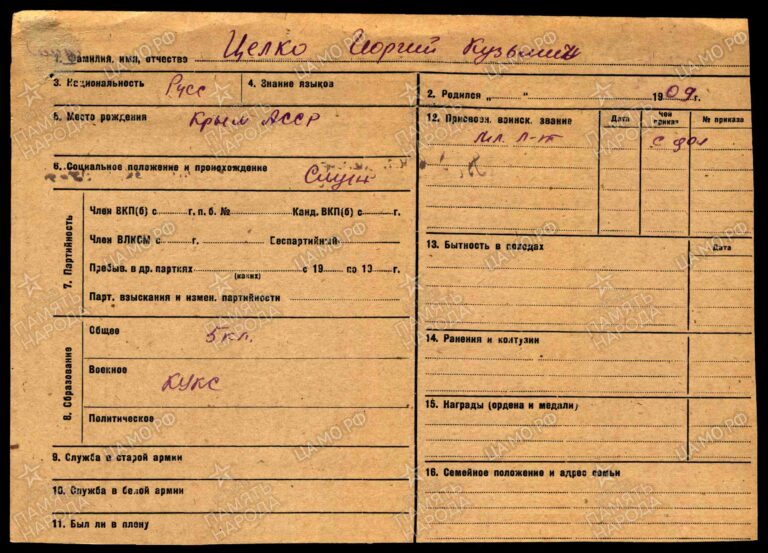 1. Фамилия, имя, отчество Целко Георгий Кузьмич
3. Национальность Русс
4. Знание языков
5. Место рождения Крым АССР
6. Социальное положение и происхождение Служ
7. Партийность
Член ВКП(б) с г. п. б. № Канд. ВКП(б) с г.
Член ВЛКСМ с г. Беспартийный
Пребыв. в др. партиях с 19 по 19 г.
(каких)
Парт. взыскания и измен. партийности
8. Образование
Общее 5 кл.
Военное КУКС
Политическое
9. Служба в старой армии
10. Служба в белой армии
11. Был ли в плену
2. Родился „ “ 1909 г.
12. Присвоен. воинск. звание Дата Чей приказ № приказа
Мл л-т
13. Бытность в походах Дата
14. Ранения и контузии
15. Награды (ордена и медали)
16. Семейное положение и адрес семьи
ПАМЯТЬ НАРОДА
ЦАМО.РФ